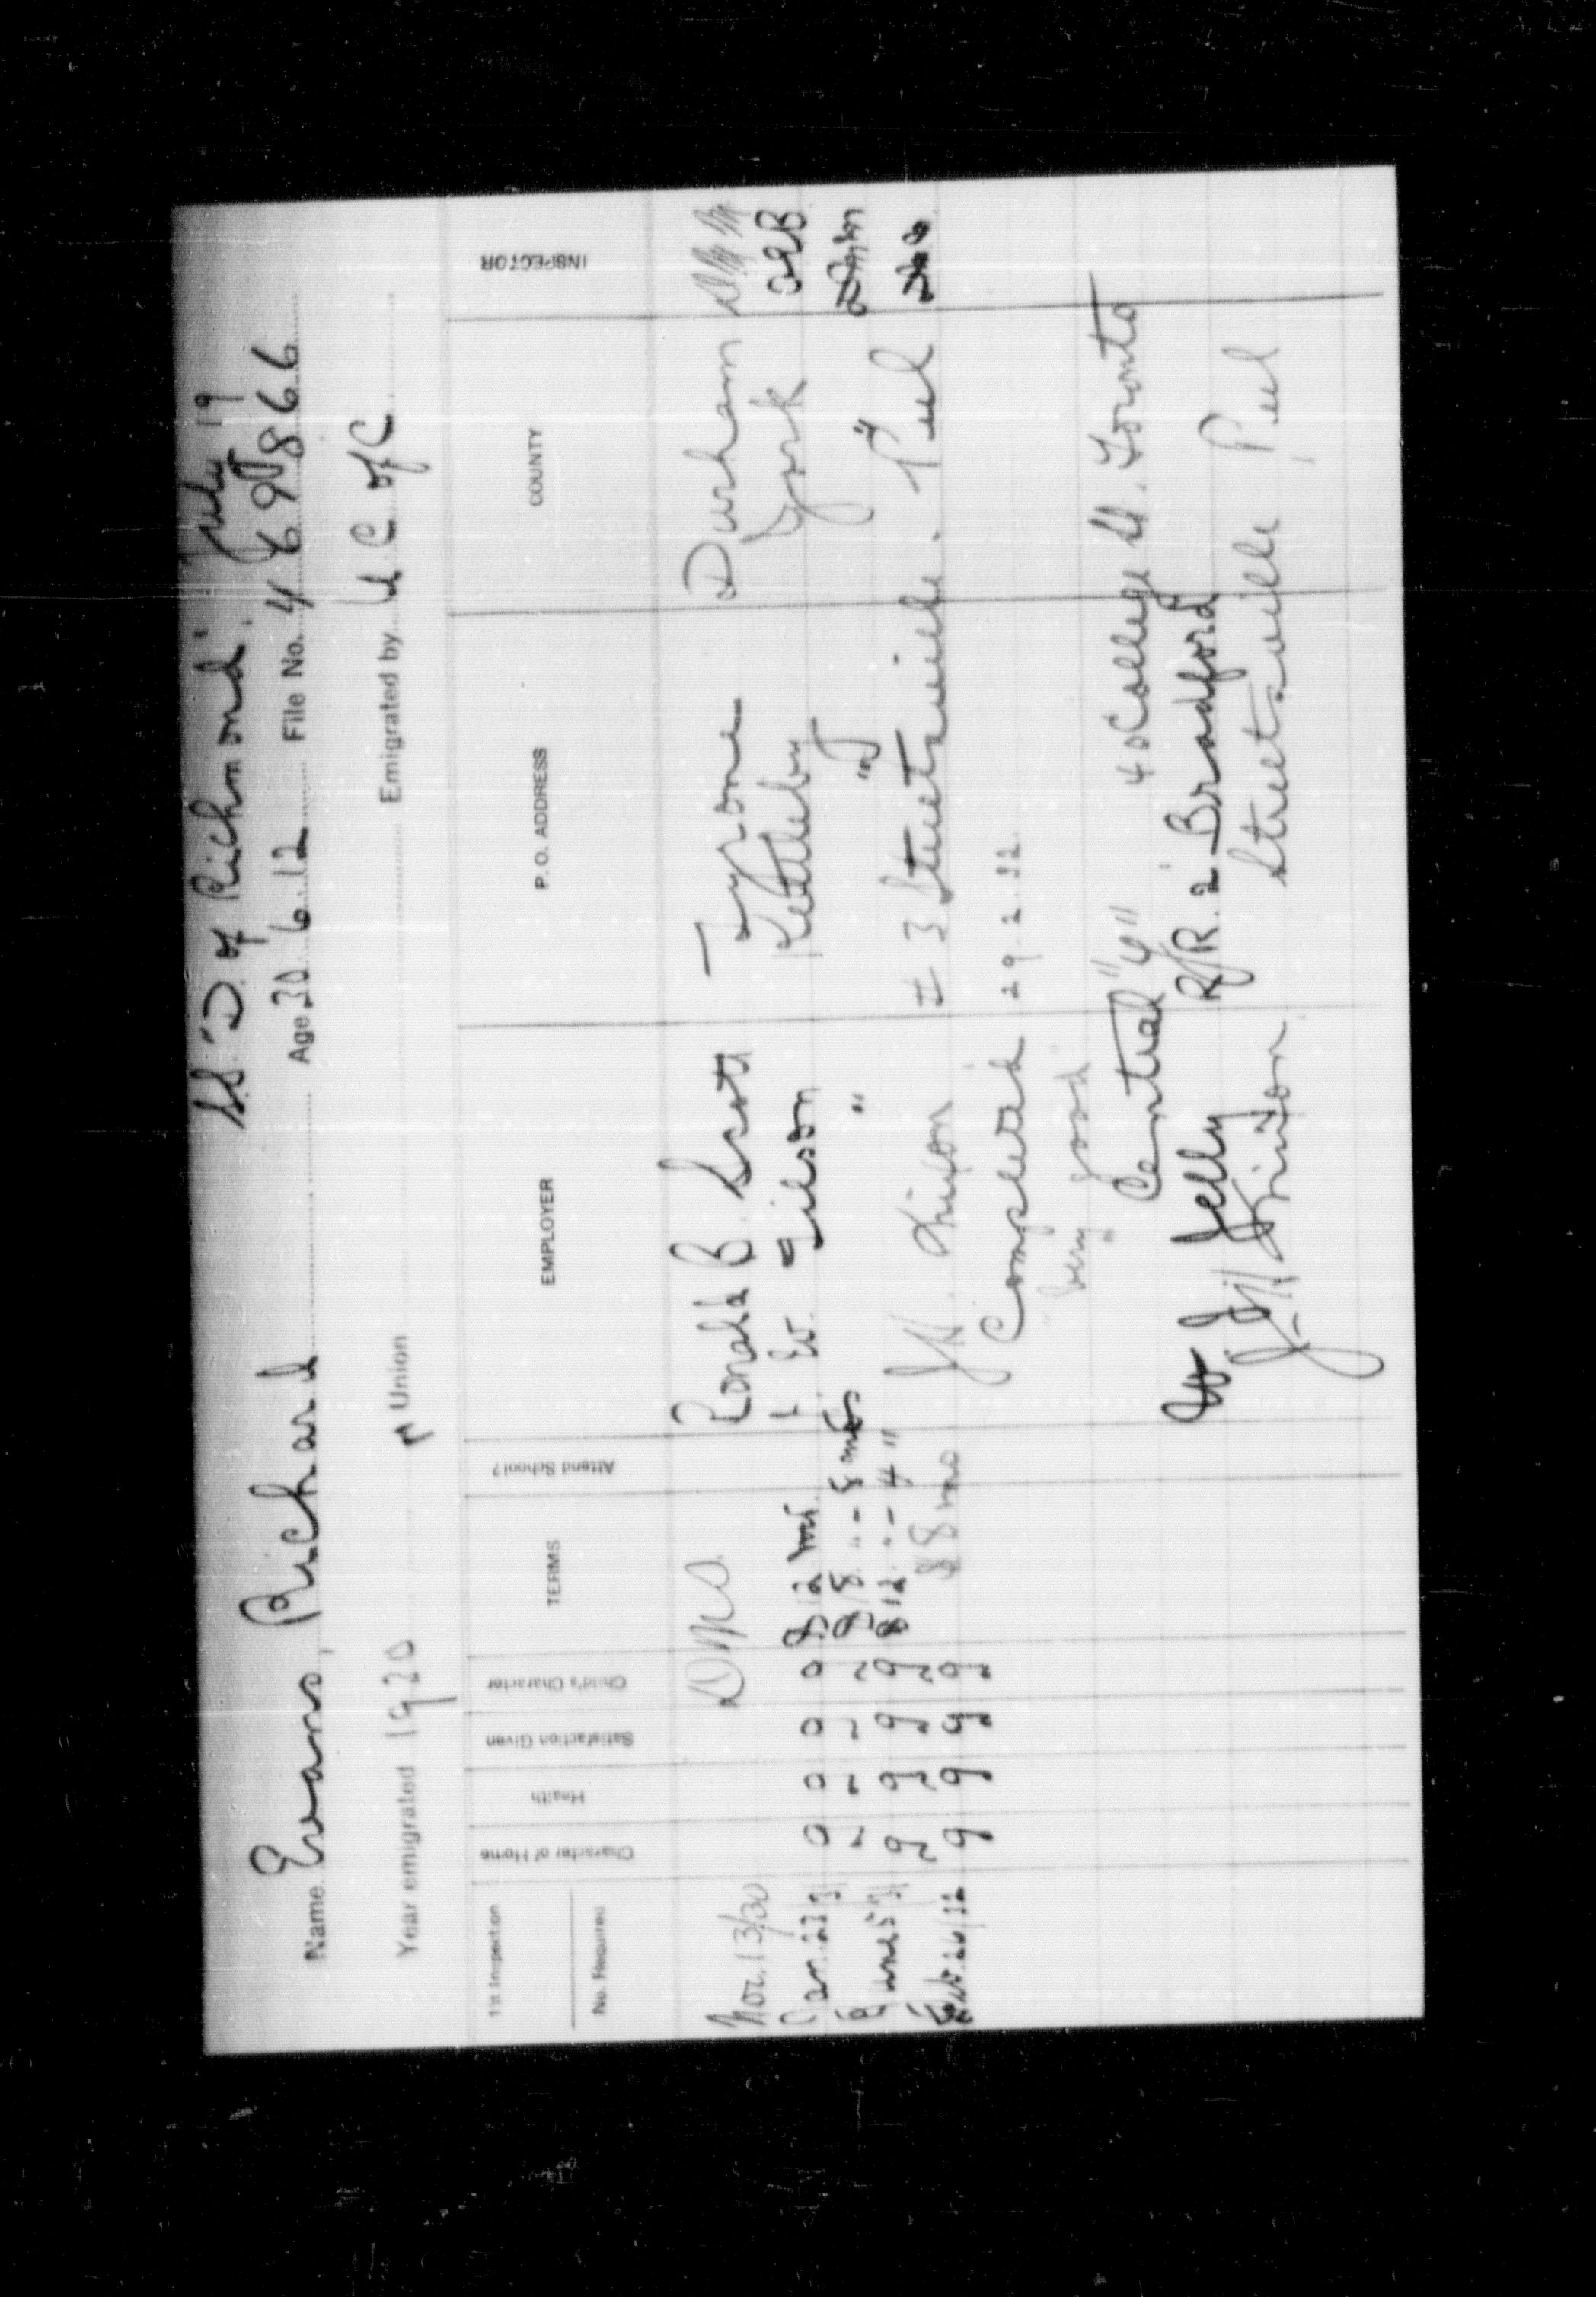 S.S. "D. of Richmond". July 19
Name Evans, Richard Age 30.6.12 File No. 469866
Year emigrated 1930 Union Emigrated by U. C. of C
1st Inspection
No. Required
Character of Home Health Satisfaction Given Child's Character TERMS Attend School? EMPLOYER P. O. ADDRESS COUNTY INSPECTOR
Nov. 13/30 Ronald B. Scott Tyrone Durham
Jan. 23 31 g g g g $12 mo. L. W. Gilson Kettleby York OEB
June 5 31 g g g g 8 12 " - 4 " " " "
Feb. 26/32 g g g g 8 mo J. H. # 3 Streetsville. Peel
Completed 29.2.32.
"very good"
Central "Y" 40 College St. Toronto
W. J. Jelly R.R. 2 Bradford
J. H. Streetsville Peel